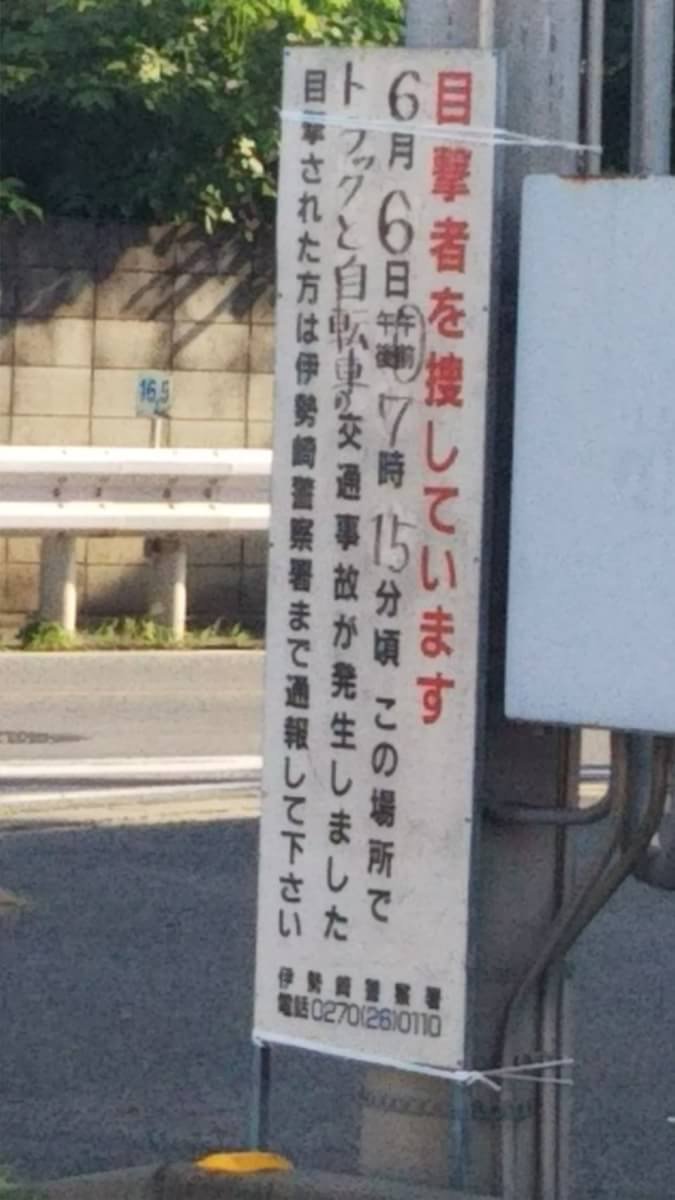 目撃者を捜しています
6月6日午前午後7時15分頃 この場所で
トラックと自転車の交通事故が発生しました
目撃された方は伊勢崎警察署まで通報して下さい
伊勢崎警察署
電話0270(26)0110
16.5